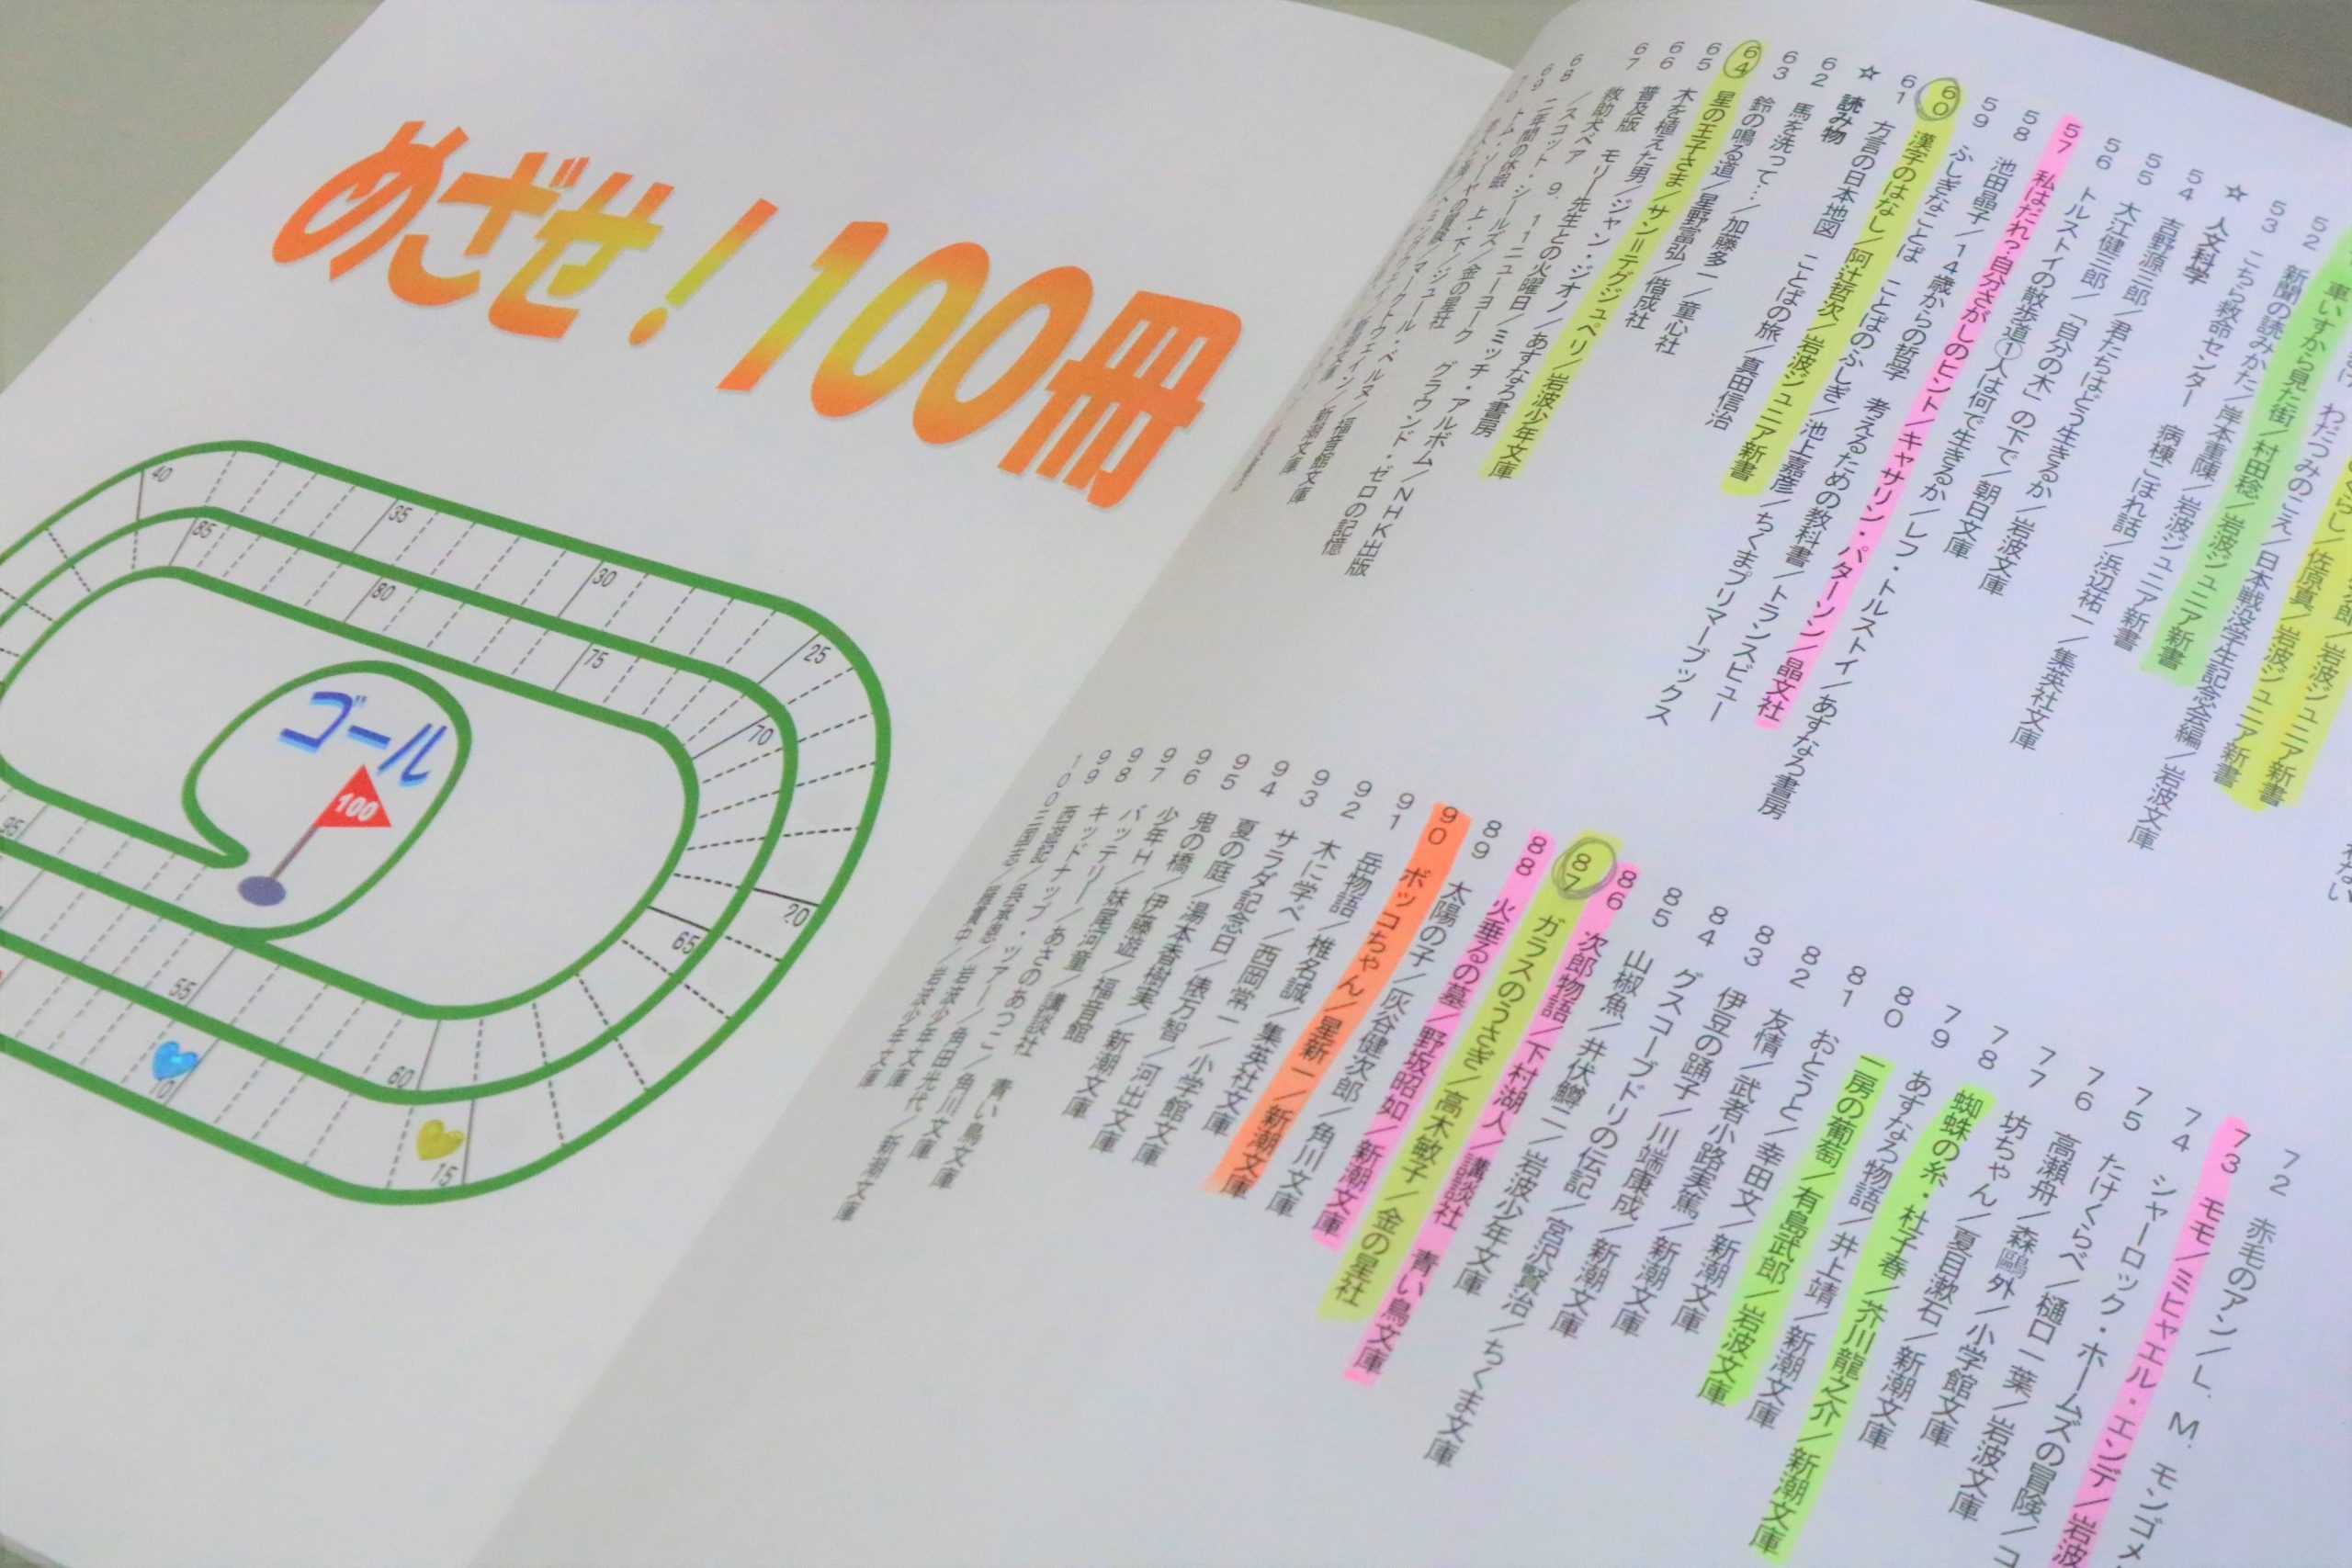 めざせ！100冊
40
35
30
25
20
15
10
85
80
75
70
65
60
55
95
ゴール
100
車いすから見た街／村田稔／岩波ジュニア新書
52 新聞の読みかた／岸本重陳／岩波ジュニア新書
53 こちら救命センター 病棟こぼれ話／浜辺祐一／集英社文庫
☆ 人文科学
54 吉野源三郎／君たちはどう生きるか／岩波文庫
55 大江健三郎／「自分の木」の下で／朝日文庫
56 トルストイの散歩道①人は何で生きるか／レフ・トルストイ／あすなろ書房
57 私はだれ？自分さがしのヒント／キャサリン・パターソン／晶文社
58 池田晶子／14歳からの哲学 考えるための教科書／トランスビュー
59 ふしぎなことば ことばのふしぎ／池上嘉彦／ちくまプリマーブックス
60 漢字のはなし／阿辻哲次／岩波ジュニア新書
61 方言の日本地図 ことばの旅／真田信治
☆ 読み物
62 馬を洗って…／加藤多一／童心社
63 鈴の鳴る道／星野富弘／偕成社
64 星の王子さま／サン＝テグジュペリ／岩波少年文庫
65 木を植えた男／ジャン・ジオノ／あすなろ書房
66 普及版 モリー先生との火曜日／ミッチ・アルボム／NHK出版
67 救助犬ベア 9.11ニューヨーク グラウンド・ゼロの記憶
／スコット・シールズ／金の星社
68 二年間の休暇 上・下／ジュール・ベルヌ／福音館文庫
69
72 赤毛のアン／L.M.モンゴメ
73 モモ／ミヒャエル・エンデ／岩波
74 シャーロック・ホームズの冒険／コ
75 たけくらべ／樋口一葉／岩波文庫
76 高瀬舟／森鷗外／小学館文庫
77 坊ちゃん／夏目漱石／新潮文庫
78 蜘蛛の糸・杜子春／芥川龍之介／新潮文庫
79 あすなろ物語／井上靖／新潮文庫
80 一房の葡萄／有島武郎／岩波文庫
81 おとうと／幸田文／新潮文庫
82 友情／武者小路実篤／新潮文庫
83 伊豆の踊子／川端康成／新潮文庫
84 グスコーブドリの伝記／宮沢賢治／ちくま文庫
85 山椒魚／井伏鱒二／岩波少年文庫
86 次郎物語／下村湖人／講談社 青い鳥文庫
87 ガラスのうさぎ／高木敏子／金の星社
88 火垂るの墓／野坂昭如／新潮文庫
89 太陽の子／灰谷健次郎／角川文庫
90 ボッコちゃん／星新一／新潮文庫
91 岳物語／椎名誠／集英社文庫
92 木に学べ／西岡常一／小学館文庫
93 サラダ記念日／俵万智／河出文庫
94 夏の庭／湯本香樹実／新潮文庫
95 鬼の橋／伊藤遊／福音館
96 少年H／妹尾河童／講談社 青い鳥文庫
97 バッテリー／あさのあつこ／角川文庫
98 キッドナップ・ツアー／角田光代／新潮文庫
99 西遊記／呉承恩／岩波少年文庫
100 三国志／羅貫中／岩波少年文庫